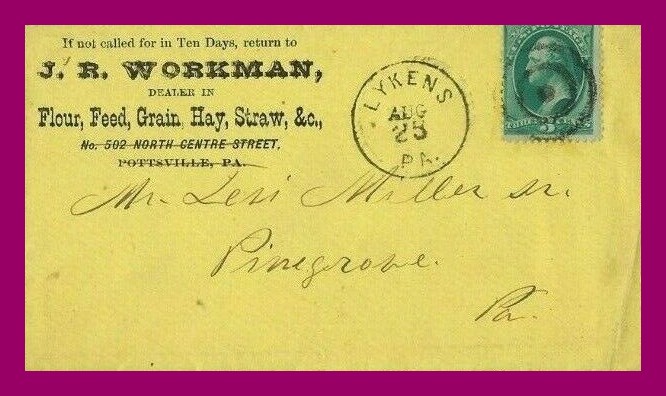 If not called for in Ten Days, return to
J. R. WORKMAN,
DEALER IN
Flour, Feed, Grain, Hay, Straw, &c.,
No. 502 NORTH CENTRE STREET,
POTTSVILLE, PA.
LYKENS
AUG
25
PA.
Mr. Levi Miller sr.
Pinegrove.
Pa.